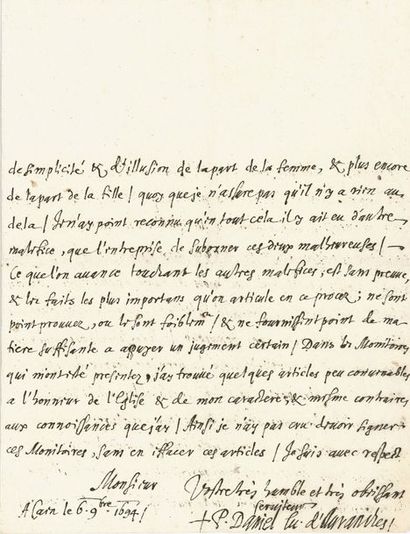 de simplicité & d'illusion de la part de la femme, & plus encore
de la part de la fille / quoy que je n'assure pas qu'il n'y a rien au
dela / Je n'ay point reconnu qu'en tout cela il y ait eu d'autre
malefice, que l'entreprise de suborner ces deux malheureuses /
Ce que l'on auance touchant les autres malefices, est sans preuue,
& les faits les plus importans qu'on articule en ce procez; ne sont
point prouuez, ou le sont foiblemt / & ne fournissent point de ma-
tiere suffisante a appuyer un jugement certain / Dans les Monitoires
qui m'ont esté presentez, j'ay trouué quelques articles peu conuenables
a l'honneur de l'Eglise & de mon caractere, & mesme contraires
aux connoissances que j'ay / Ainsi je n'ay pas cru deuoir signer
ces Monitoires, sans en effacer ces articles / Je suis auec respect
Monsieur
Vostre tres humble et tres obeissant
seruiteur
A Caen le 6. 9bre 1694 /
+ P. Daniel Eu. d'Auranches /